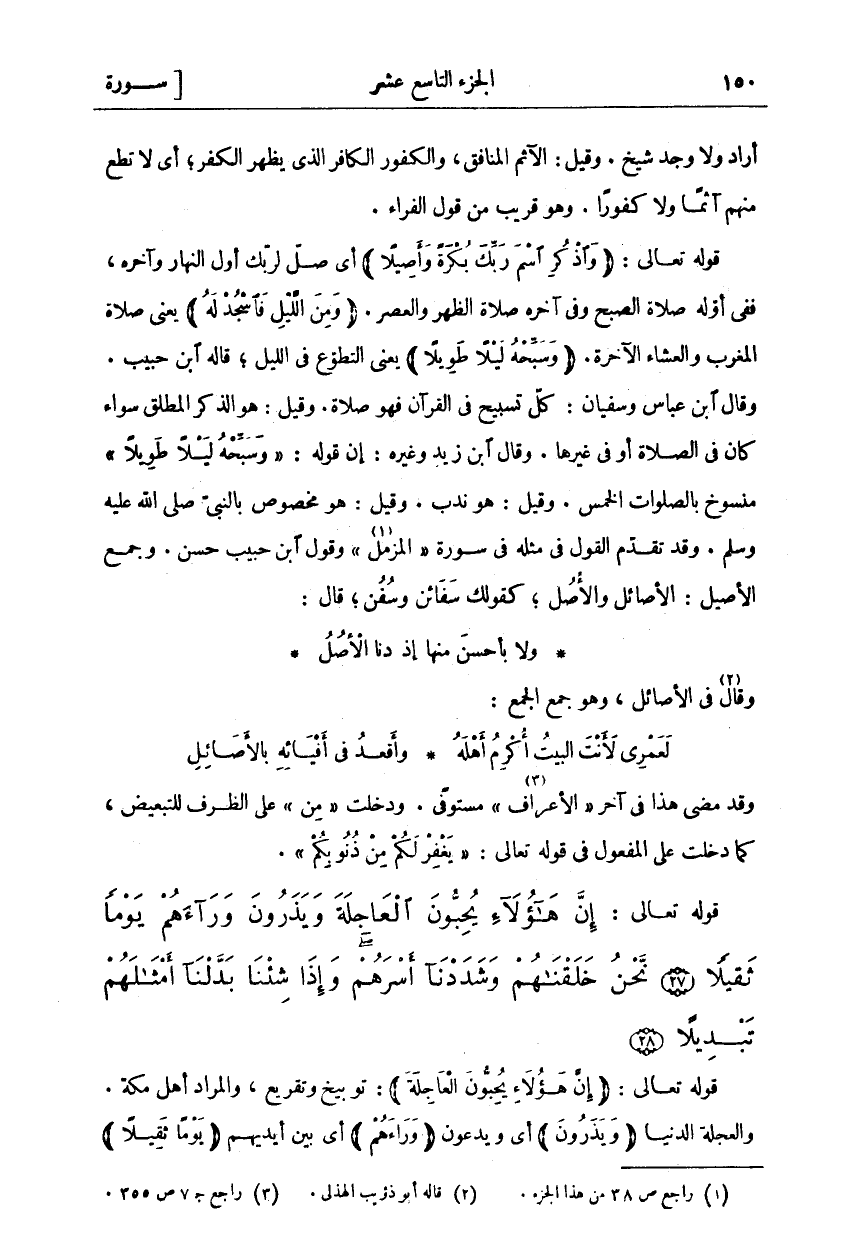 ١٥٠ الجزء التاسع عشر [ ســـورة
أراد ولا وجد شيخ . وقيل : الآثم المنافق ، والكفور الكافر الذى يظهر الكفر ؛ أى لا تطع
منهم آثمـا ولا كفورًا . وهو قريب من قول الفراء .
قوله تعـالى : ﴿ وَٱذْكُرِ ٱسْمَ رَبِّكَ بُكْرَةً وَأَصِيلًا ﴾ أى صـلّ لربّك أول النهار وآخره ،
ففى أوّله صلاة الصبح وفى آخره صلاة الظهر والعصر . ﴿ وَمِنَ اللَّيْلِ فَٱسْجُدْ لَهُ ﴾ يعنى صلاة
المغرب والعشاء الآخرة . ﴿ وَسَبِّحْهُ لَيْلًا طَوِيلًا ﴾ يعنى التطوّع فى الليل ؛ قاله ٱبن حبيب .
وقال ٱبن عباس وسفيان : كلّ تسبيح فى القرآن فهو صلاة . وقيل : هو الذكر المطلق سواء
كان فى الصـلاة أو فى غيرها . وقال ٱبن زيد وغيره : إن قوله : « وَسَبِّحْهُ لَيْـلًا طَوِيلًا »
منسوخ بالصلوات الخمس . وقيل : هو ندب . وقيل : هو مخصوص بالنبىّ صلى الله عليه
وسلم . وقد تقـدّم القول فى مثله فى سـورة « المزمل » (١) وقول ٱبن حبيب حسن . وجمـع
الأصيل : الأصائل والأُصُل ؛ كقولك سَفَائن وسُفُن ؛ قال :
* ولا بأحسنَ منها إذ دنا الْأُصُلُ *
وقال (٢) فى الأصائل ، وهو جمع الجمع :
لَعَمْرِى لَأَنْتَ البيتُ أُكْرِمُ أَهْلَهُ * وأَقعـدُ فى أَفْيَـائهِ بالأَصَـائـلِ
وقد مضى هذا فى آخر « الأعراف » (٣) مستوفًى . ودخلت « مِن » على الظـرف للتبعيض ،
كما دخلت على المفعول فى قوله تعالى : « يَغْفِرْ لَكُمْ مِنْ ذُنُوبِكُمْ » .
قوله تعـالى : إِنَّ هَـٰٓؤُلَآءِ يُحِبُّونَ ٱلْعَاجِلَةَ وَيَذَرُونَ وَرَآءَهُمْ يَوْمًا
ثَقِيلًا ﴿٢٧﴾ نَّحْنُ خَلَقْنَـٰهُمْ وَشَدَدْنَآ أَسْرَهُمْ ۖ وَإِذَا شِئْنَا بَدَّلْنَآ أَمْثَـٰلَهُمْ
تَبْـدِيلًا ﴿٢٨﴾
قوله تعـالى : ﴿ إِنَّ هَـؤُلَاءِ يُحِبُّونَ الْعَاجِلَةَ ﴾ : توبيخ وتقريع ، والمراد أهل مكة .
والعجلة الدنيـا ﴿ وَيَذَرُونَ ﴾ أى ويدعون ﴿ وَرَاءَهُمْ ﴾ أى بين أيديهـم ﴿ يَوْمًا ثَقِيـلًا ﴾
(١) راجع ص ٣٨ من هذا الجزء . (٢) قاله أبو ذؤيب الهذلى . (٣) راجع ج ٧ ص ٣٥٥ .